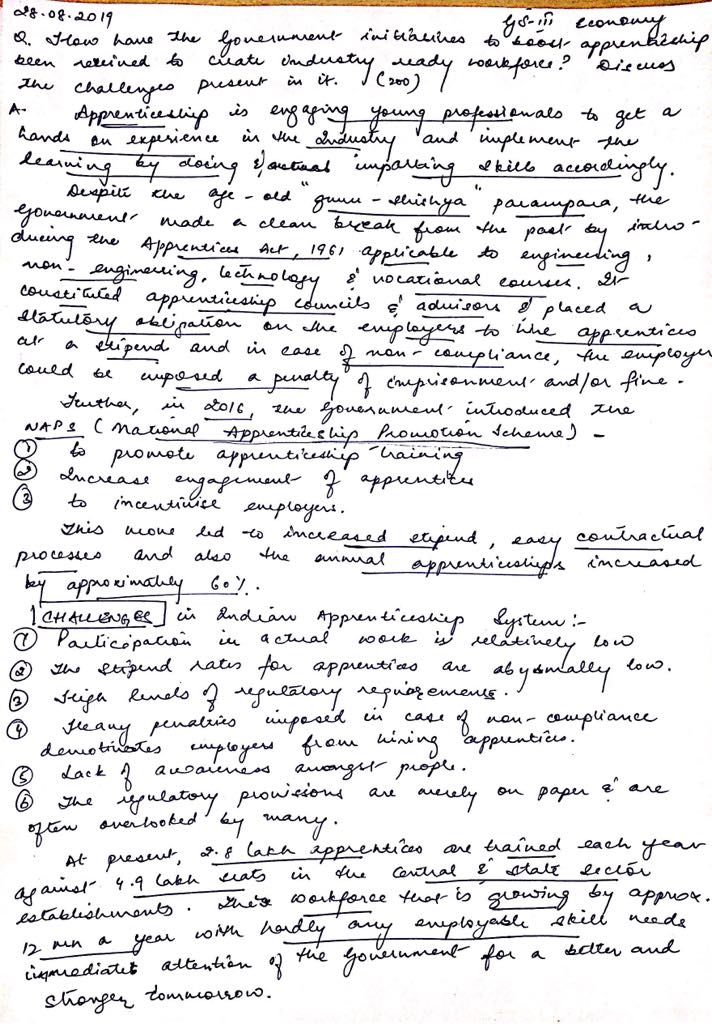 28.08.2019 GS-III economy
Q. How have the Government initiatives to boost apprenticeship
been received to create industry ready workforce? Discuss
the challenges present in it. (200)
A. Apprenticeship is engaging young professionals to get a
hands on experience in the Industry and implement the
learning by doing & imparting skills accordingly.
Despite the age-old "guru-shishya" parampara, the
Government made a clean break from the past by intro-
ducing the Apprentices Act, 1961 applicable to engineering,
non-engineering, technology & vocational courses. It
constituted apprenticeship councils & advisors & placed a
statutory obligation on the employers to hire apprentices
at a stipend and in case of non-compliance, the employer
could be imposed a penalty of imprisonment and/or fine.
Further, in 2016, the Government introduced the
NAPS (National Apprenticeship Promotion Scheme) -
① to promote apprenticeship training
② Increase engagement of apprentices
③ to incentivise employers.
This move led to increased stipend, easy contractual
processes and also the annual apprenticeships increased
by approximately 60%.
CHALLENGES in Indian Apprenticeship System:-
① Participation in actual work is relatively low
② The stipend rates for apprentices are abysmally low.
③ High levels of regulatory requirements.
④ Heavy penalties imposed in case of non-compliance
demotivates employers from hiring apprentices.
⑤ Lack of awareness amongst people.
⑥ The regulatory provisions are merely on paper & are
often overlooked by many.
At present, 2.8 lakh apprentices are trained each year
against 4.9 lakh seats in the central & state sector
establishments. This workforce that is growing by approx.
12 mn a year with hardly any employable skill needs
immediate attention of the Government for a better and
stronger tommorrow.